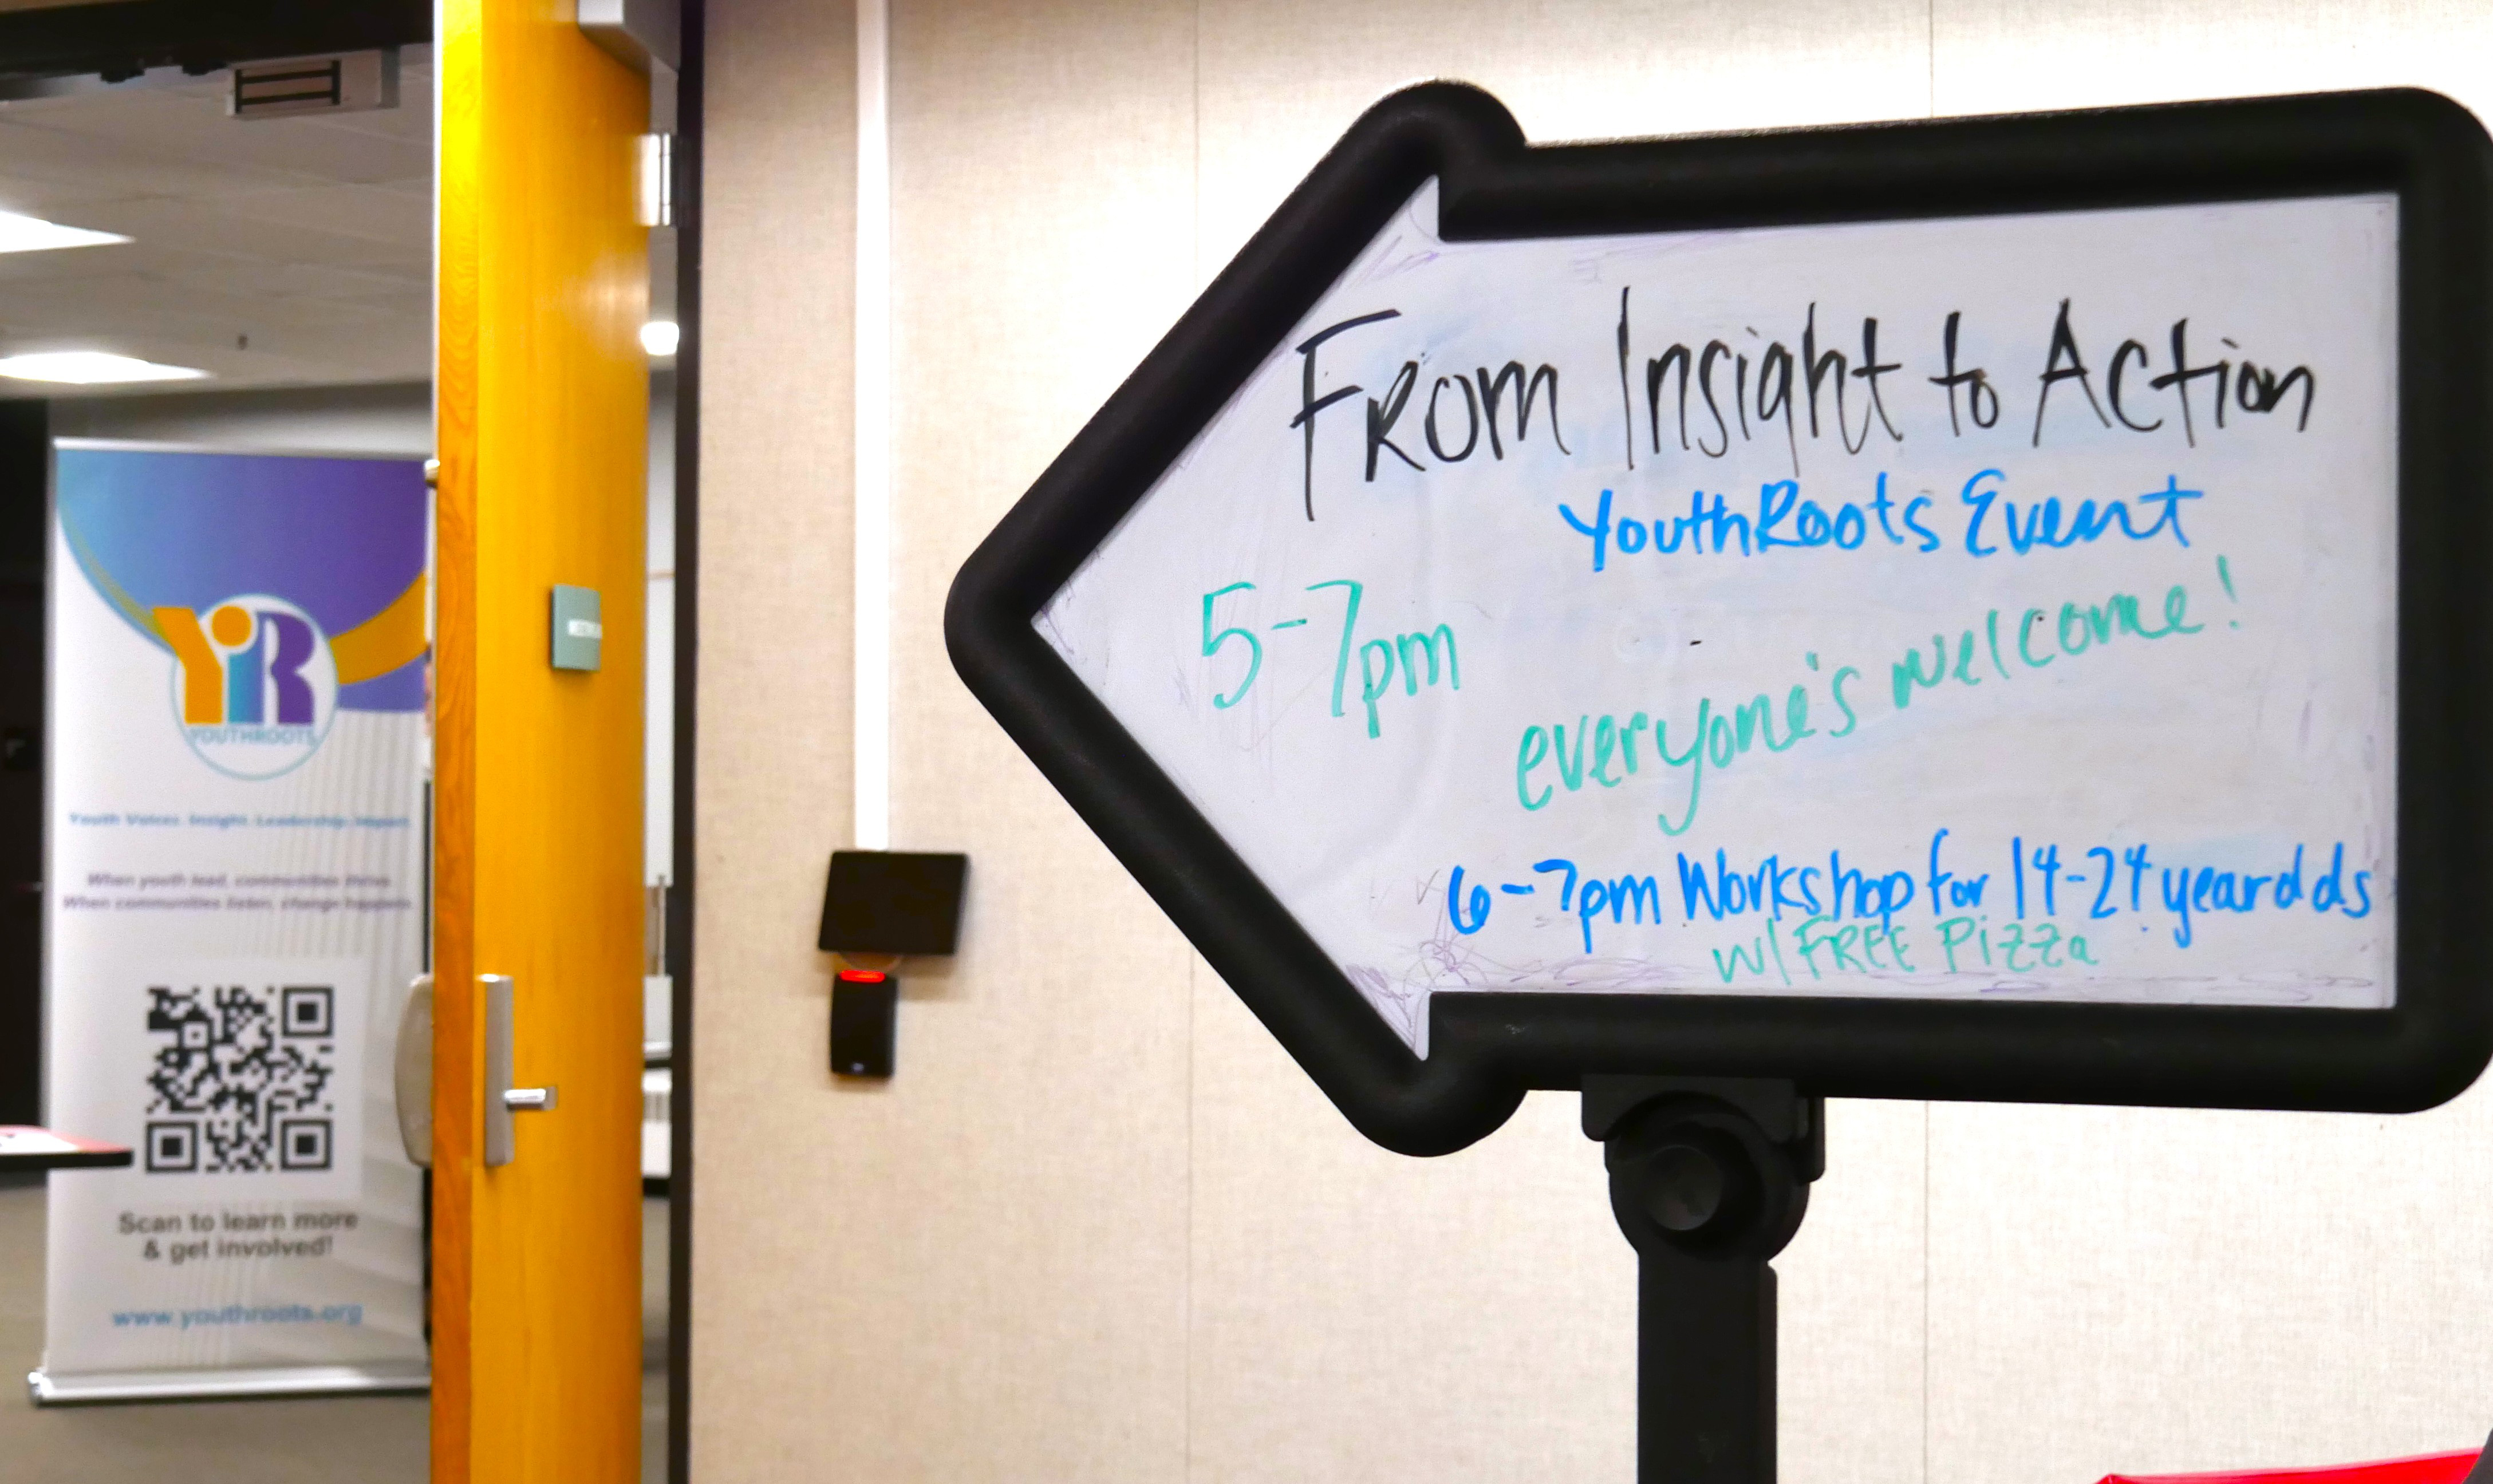 From Insight to Action
YouthRoots Event
5-7pm
everyone's welcome!
6-7pm Workshop for 14-24 year olds
w/ FREE Pizza
YiR
YOUTHROOTS
Youth Voices. Insight. Leadership. Impact.
When youth lead, communities thrive.
When communities listen, change happens.
Scan to learn more
& get involved!
www.youthroots.org